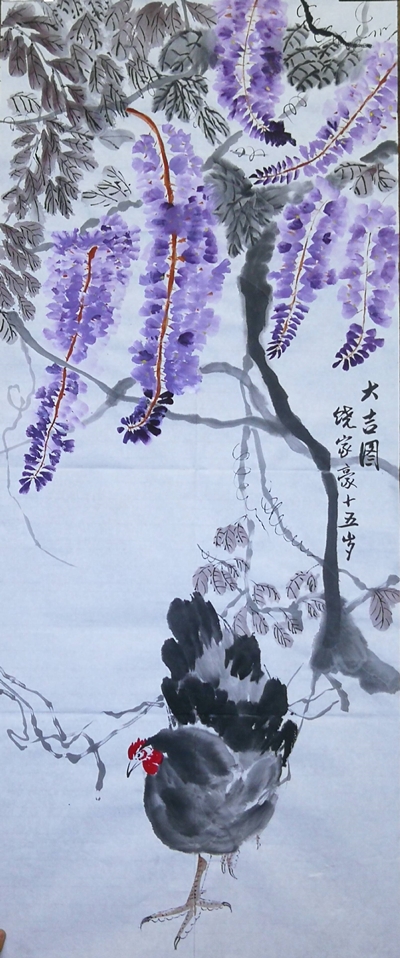 大吉图
绕家豪十五岁